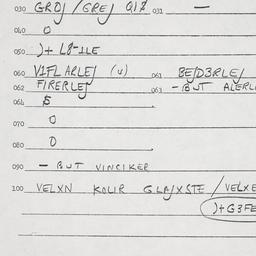 030 GRDJ / GREJ Q1$ 031 —
040 O
050 )+ L8-1LE
060 V1FL ARLEJ (4) 061 BE/D3RLEJ
062 FIRERLEJ 063 - BUT ALERL
064 $
070 O
080 O
090 - BUT VINCIKER
100 VELXN KOLIR GLAJXSTE / VELXE
)+G3FE